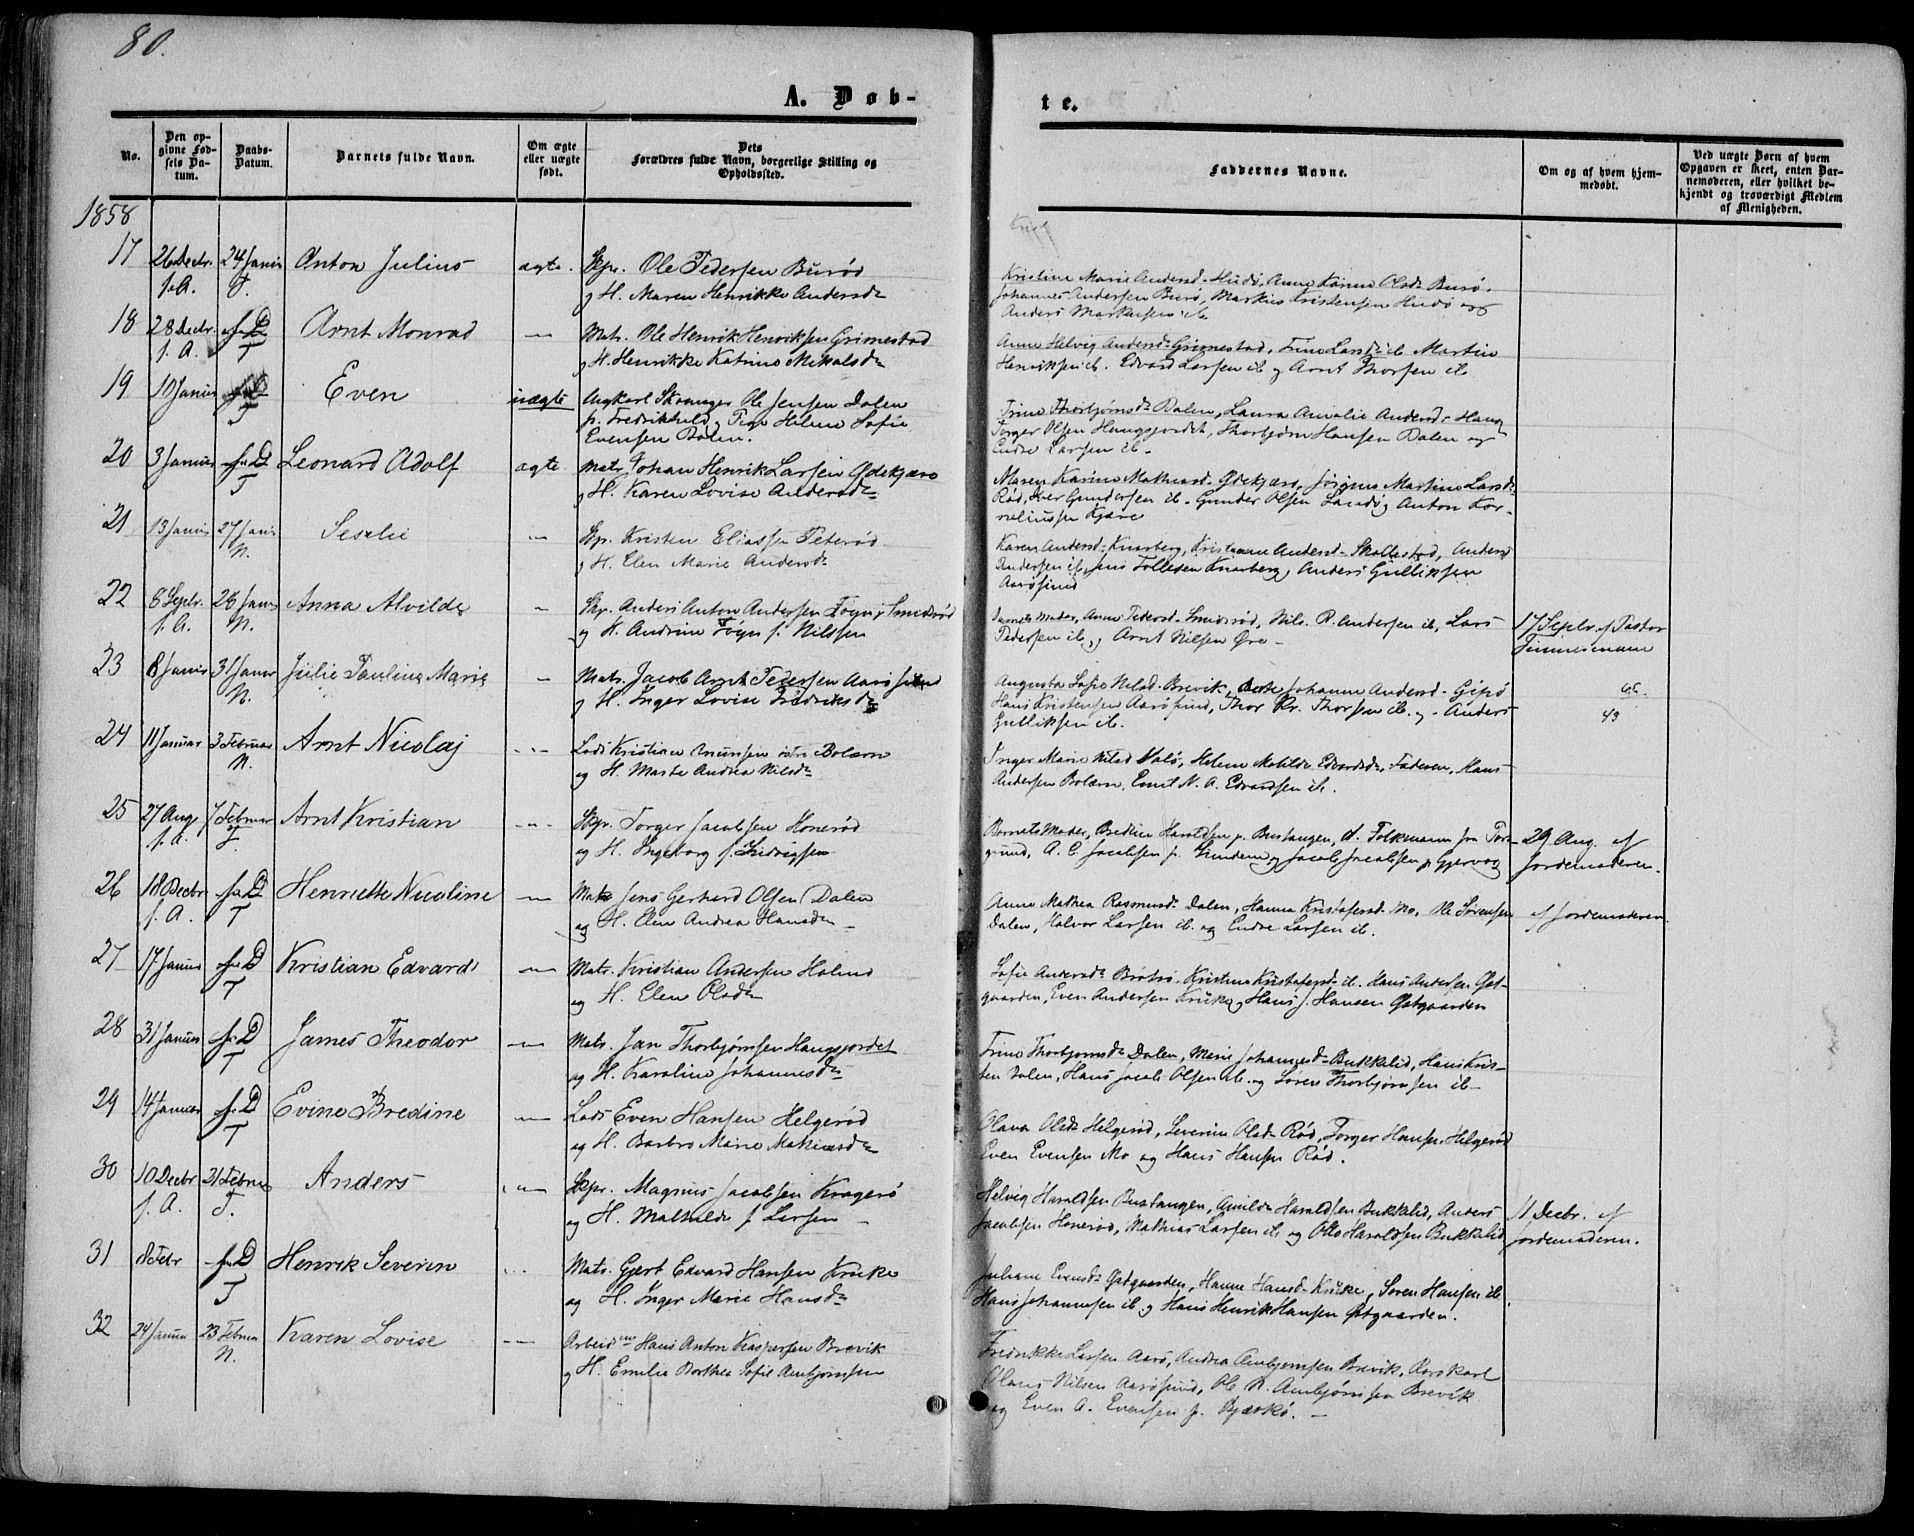 80.
A. Døb-
te.
No.
Den op-
givne Fød-
sels Da-
tum.
Daabs-
Datum.
Barnets fulde Navn.
Om ægte
eller uægte
født.
Dets
Forældres fulde Navn, borgerlige Stilling og
Opholdssted.
Faddernes Navne.
Om og af hvem hjem-
medøbt.
Ved uægte Børn af hvem
Opgaven er skeet, enten Bar-
nemoderen, eller hvilket be-
kjendt og troværdigt Medlem
af Menigheden.
1858
17 26 Decbr. 24 Januar Anton Julius ægte. Skpr. Ole Pedersen Burød
f. A. T. og H. Maren Henrikke Andersdr
Kristine Marie Andersd. Hudø, Anne Karine Olsdr Burø.
Johannes Andersen Burø, Markus Kristensen Hudø og
Anders Markusen ib.
18 28 Decbr. Arnt Monrad — Matr. Ole Henrik Henriksen Grimestad
f. A. T og H. Henrikke Katrine Mikalsdr
Anne Helvig Andersdr Grimestad, Trine Larsdr ib. Martin
Henriksen ib. Edvard Larsen ib. og Arnt Thorsen ib.
19 10 Januar Even uægte Ungkarl Ole Jensen Dalen
T fr. Fredrikshald og Pige Helene Sofie
Evensen Dalen.
Trine Thorbjørnsdr Dalen, Laura Amalie Andersdr Haug
Torger Olsen Haugsjordet, Thorbjørn Hansen Dalen og
Endre Larsen ib.
20 3 Januar f. D Leonard Adolf ægte Matr. Johan Henrik Larsen Ødekjær
T og H. Karen Lovise Andersdr
Maren Karine Mathiasd. Ødekjær, Jørgine Martine Larsdr
Rød, Iver Gundersen ib. Gunder Olsen Sandø og Anton Kor-
neliussen Kjære
21 13 Januar 27 Januar Seselie — Skpr. Kristen Eliassen Peterød
N. og H. Elen Marie Andersdr
Karen Andersd. Knarberg, Kristianne Andersd. Skallestad, Anders
Andersen ib. Jens Tollefsen Knarberg og Anders Gulliksen
Aarøsund
22 8 Septr. 28 Januar Anna Alvilde — Skpr. Anders Anton Andersen Føyn Smidsrød
f. A. N. og H. Andrine Føyn f. Nilssen
Barnets Moder, Anne Pedersd. Smidsrød, Nils P. Andersen ib, Lars
Pedersen ib, og Arnt Nilsen Øre
17 Septr. af Pastor
23 8 Januar 31 Januar Julie Pauline Marie — Matr. Jacob Arnt Pedersen Aarøsund
N. og H. Inger Lovise Fredriksdr
Augusta Sofie Nilsd. Brevik, Johanne Andersd. Gipø
Hans Kristensen Aarøsund, Thor Kr. Thorsen ib. og Anders
Gulliksen ib.
24 11 Januar 3 Februar Arnt Nicolaj — Lods Kristian østre Bolærn
N. og H. Marte Andrea Nilsdr
Inger Marie Nilsd Valø, Helene Matilde Edvardsdr, Faderen, Hans
Andersen Bolærn, Emil N. A. Edvardsen ib.
25 27 Aug. 7 Februar Arnt Kristian — Skpr. Torger Jacobsen Honerød
f. A. T. og H. Ingeborg f. Ludvigsen
Barnets Moder, Bredine Haraldsen f. Bustangen, d. Folkmann fra Tøns-
grund, A. C. Jacobsen og Jacob Jacobsen
29 Aug. af
Jordemoderen.
26 18 Decbr f. D Henriette Nicoline — Matr Jens Gerhard Olsen Dalen
f. A. T og H. Elen Andrea Hansdr
Anne Mathea Rasmusd. Dalen, Hanna Kristofersd. Mo, Ole Sørensen
Dalen, Halvor Larsen ib. og Endre Larsen ib.
af Jordemoderen
27 17 Januar f. D Kristian Edvard — Matr. Kristian Andersen Holme
T og H. Elen Olsdr
Sofie Andersdr Brøtsø, Kristine Kristofersd. ib. Hans Andersen Øst-
gaarden, Even Andersen Kruke og Hans J. Hansen Østgaarden
28 31 Januar f. D James Theodor — Matr. Jan Thorbjørnsen Haugsjordet
T og H. Karoline Johannesdr
Trine Thorbjørnsdr Dalen, Marie Johannesd. Bukkelid, Hans Kris-
ten Dalen, Hans Jacob Olsen ib. og Søren Thorbjørnsen ib.
29 14 Januar f. D Evine Bredine — Lods Even Hansen Helgerød
T og H. Barbro Marie Mathiasdr
Olava Olsdr Helgerød, Severine Olsdr Rød, Torger Hansen Helgerød
Even Evensen Mo og Hans Hansen Rød.
30 10 Decbr 21 Februar Anders — Skpr. Magnus Jacobsen Kragerø
f. A. T. og H. Mathilde f. Larsen
Helvig Haraldsen Bustangen, Amilde Haraldsen Bukkelid, Anders
Jacobsen Honerød, Mathias Larsen ib. og Otto Haraldsen Bukkelid
11 Decbr. af
Jordemoderen.
31 8 Febr f. D Henrik Severin — Matr. Gjert Edvard Hansen Kruke
T og H. Inger Marie Hansdr
Juliane Evensdr Østgaarden, Hanne Hansd. Kruke, Søren Hansen ib.
Hans Johannesen ib. og Hans Henrik Hansen Østgaarden.
32 24 Januar 23 Februar Karen Lovise — Arbeidsm Hans Anton Kaspersen Brevik
N. og H. Emilie Dorthea Sofie Arnbjørnsen
Fredrikke Larsen Aarø, Andrea Arnbjørnsen Brevik, Karskarl
Olaus Nilsen Aarøsund, Ole N. Arnbjørnsen Brevik
og Even A. Evensen f. Bjærkø.